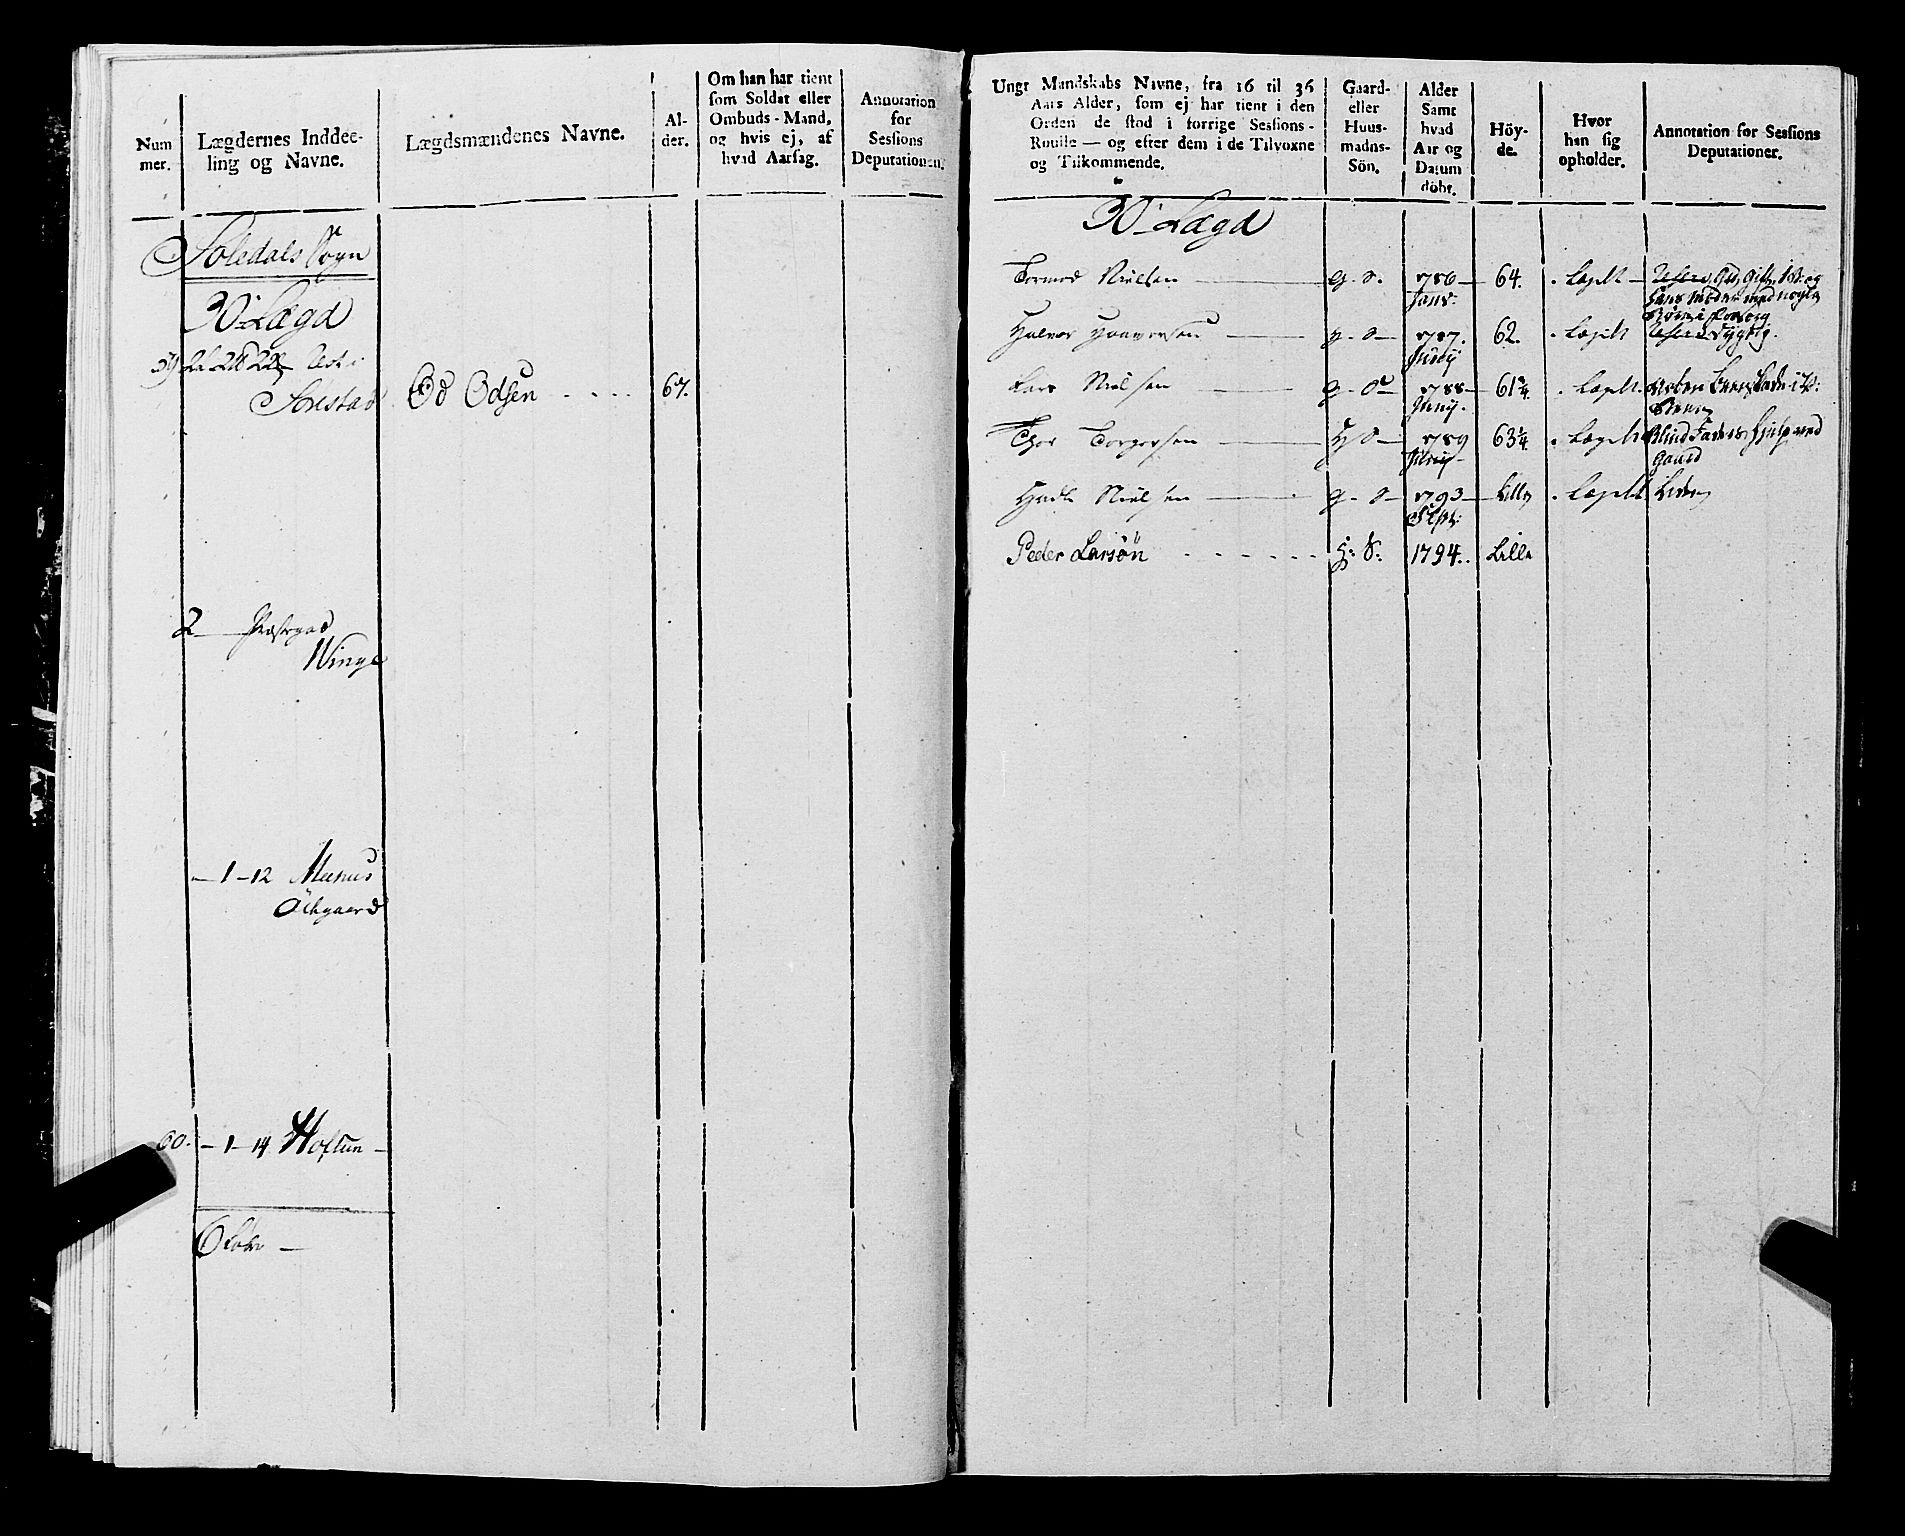 Num
mer.
Lægdernes Inddee-
ling og Navne.
Lægdsmændenes Navne.
Al-
der.
Om han har tient
som Soldat eller
Ombuds-Mand,
og hvis ej, af
hvad Aarsag.
Annotation
for
Sessions
Deputationen.
Søledals Sogn
30' Lægd
59
Sørestad
Od Odsen
67.
2
Præstegd
Winge
1-12 Meenes
Ødegaard
60. - 1 - 14 Hoftun -
6 Røde -
Ungt Mandskabs Navne, fra 16 til 36
Aars Alder, som ej har tient i den
Orden de stod i forrige Sessions-
Roulle — og efter dem i de Tilvoxne
og Tilkommende.
Gaard-
eller
Huus-
mands-
Sön.
Alder
Samt
hvad
Aar og
Datum
döbt.
Höy-
de.
Hvor
han sig
opholder.
Annotation for Sessions
Deputationer.
30' Lægd
Tormod Nielsen — g. s. 1786 Janr: 64. Lægdt
Hans Moder med nogle
Halvor — g. s. 1787. 62. Lægdt dygtig.
Juny
Lars Nielsen — g. s. 1788 61 3/4 Lægdt
Juny.
Thor Torgersen — H s. 1789 63 1/4 Lægdt Blind Faders Hielp ved
Gaard
Nielsen — g. s. 1793 Lille Lægdt Liden
Sept:
Peder Larsön H: S: 1794. Lille